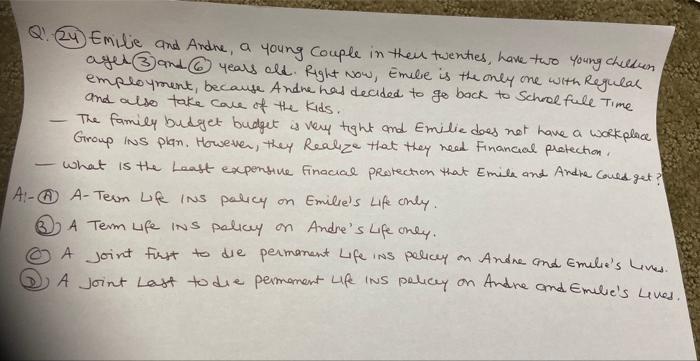 Q!. 24 Emilie and Andre, a young Couple in their twenties, have two young children
aged 3 and 6 years old. Right now, Emilie is the only one with Regular
employment, because Andre had decided to go back to School full Time
and also take care of the kids.
— The family budget budget is very tight and Emilie does not have a workplace
Group INS plan. However, they Realize that they need Financial protection.
— What is the Least expensive Finacial PRotection that Emilie and Andre Could get?
A:- A A- Term Life INS policy on Emilie's Life only.
B) A Term Life INS policy on Andre's Life only.
C) A Joint First to die permanent Life INS policy on Andre and Emilie's Lives.
D) A Joint Last to die permanent Life INS policy on Andre and Emilie's Lives.